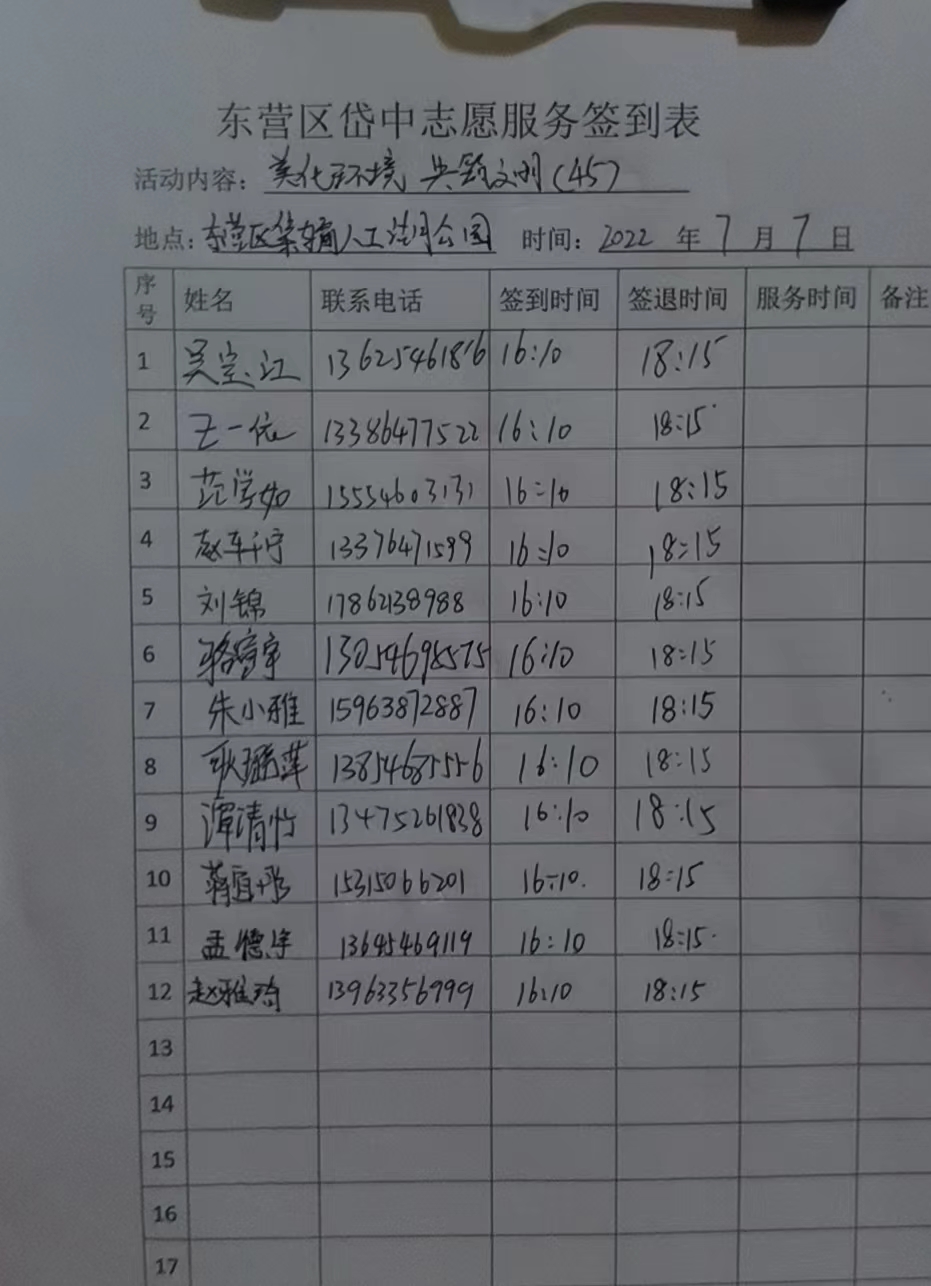 东营区岱中志愿服务签到表
活动内容: 美化环境 共筑文明(45)
地点: 东营区 人工 公园 时间: 2022 年 7 月 7 日
序号 姓名 联系电话 签到时间 签退时间 服务时间 备注
1 吴 江 13625461816 16:10 18:15
2 一依 13386477522 16:10 18:15
3 范学如 15554603131 16:10 18:15
4 赵 13376471599 16:10 18:15
5 刘锦 17862138988 16:10 18:15
6 宇 16:10 18:15
7 朱小雅 15963872887 16:10 18:15
8 耿 萍 13854685556 16:10 18:15
9 谭清怡 13475261838 16:10 18:15
10 蒋宜彤 15315066201 16:10. 18:15
11 孟德宇 13645469119 16:10 18:15
12 赵雅琦 13963356999 16:10 18:15
13
14
15
16
17